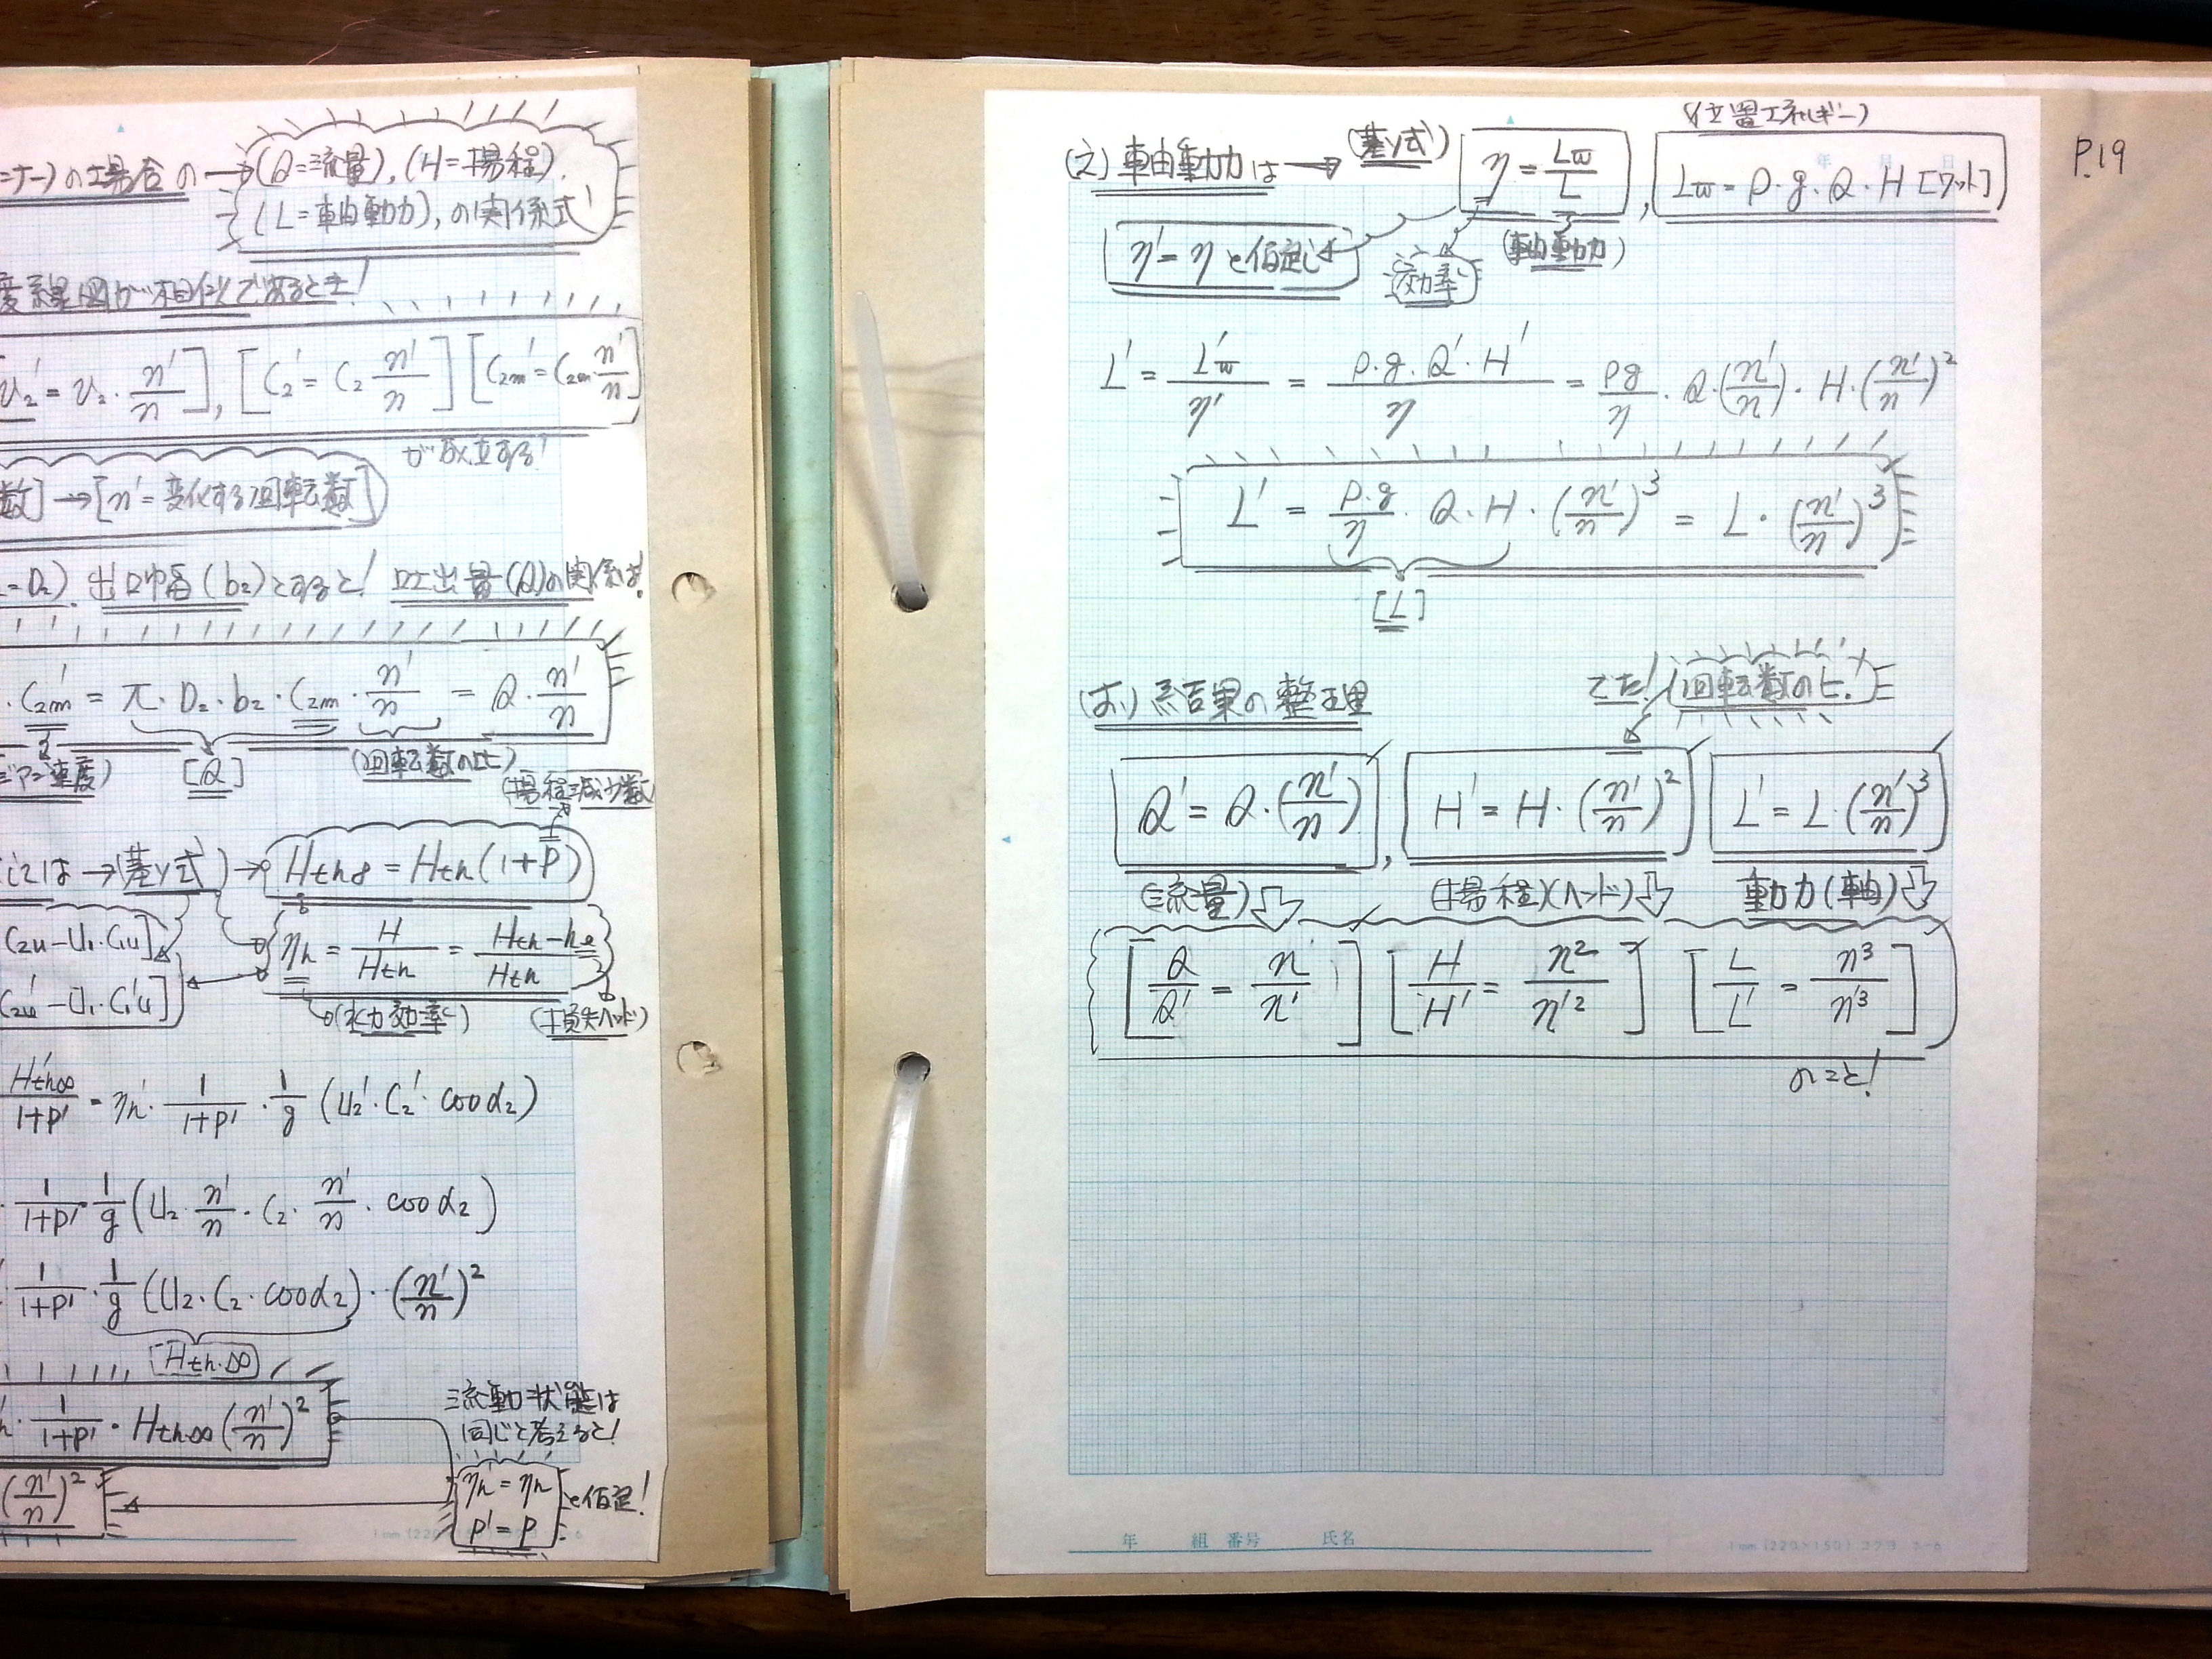 ナー)の場合の→(Q=流量),(H=揚程),
(L=軸動力),の関係式!
度線図が相似であるとき!
U₂'=U₂・n'/n],[C₂'=C₂ n'/n][C₂m'=C₂m・n'/n]
が成立する!
数]→[n'=変化する回転数]
=D₂).出口幅(b₂)とすると!吐出量(Q)の関係は!
・C₂m'=π・D₂・b₂・C₂m・n'/n=Q・n'/n
速度) [Q] (回転数の比)
(揚程減少数)
は→(基y式)→Hth∞=Hth(1+P)
C₂u−U₁・C₁u]
ηh=H/Hth=Hth−he/Hth
C₂u'−U₁・C₁'u]
(水力効率) (損失ヘッド)
H'th∞/1+P'=ηh'・1/1+P'・1/g(U₂'・C₂'・cosα₂)
・1/1+P'・1/g(U₂・n'/n・C₂・n'/n・cosα₂)
・1/1+P'・1/g(U₂・C₂・cosα₂)・(n'/n)²
Hth・∞
・1/1+P'・Hth∞(n'/n)²
流動状態は
同じと考えると!
(n'/n)²
ηh=ηh
P'=P
と仮定!
P.19
(位置エネルギー)
(え)軸動力は→(基y式) η=Lw/L , Lw=ρ・g・Q・H[ワット]
η'=ηと仮定して (効率) (軸動力)
L'=L'w/η'=ρ・g・Q'・H'/η=ρg/η・Q・(n'/n)・H・(n'/n)²
L'=ρ・g/η・Q・H・(n'/n)³=L・(n'/n)³
[L]
(お)結果の整理 でた!(回転数の比!)
Q'=Q・(n'/n) , H'=H・(n'/n)² L'=L・(n'/n)³
(流量) (揚程)(ヘッド) 動力(軸)
[Q/Q'=n/n'] [H/H'=n²/n'²] [L/L'=n³/n'³]
のこと!
年 組 番号 氏名